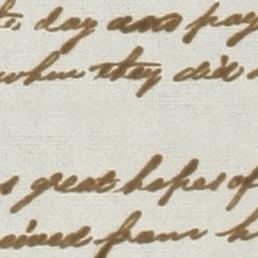 day and pay
when they did
great hopes of
ceived from h